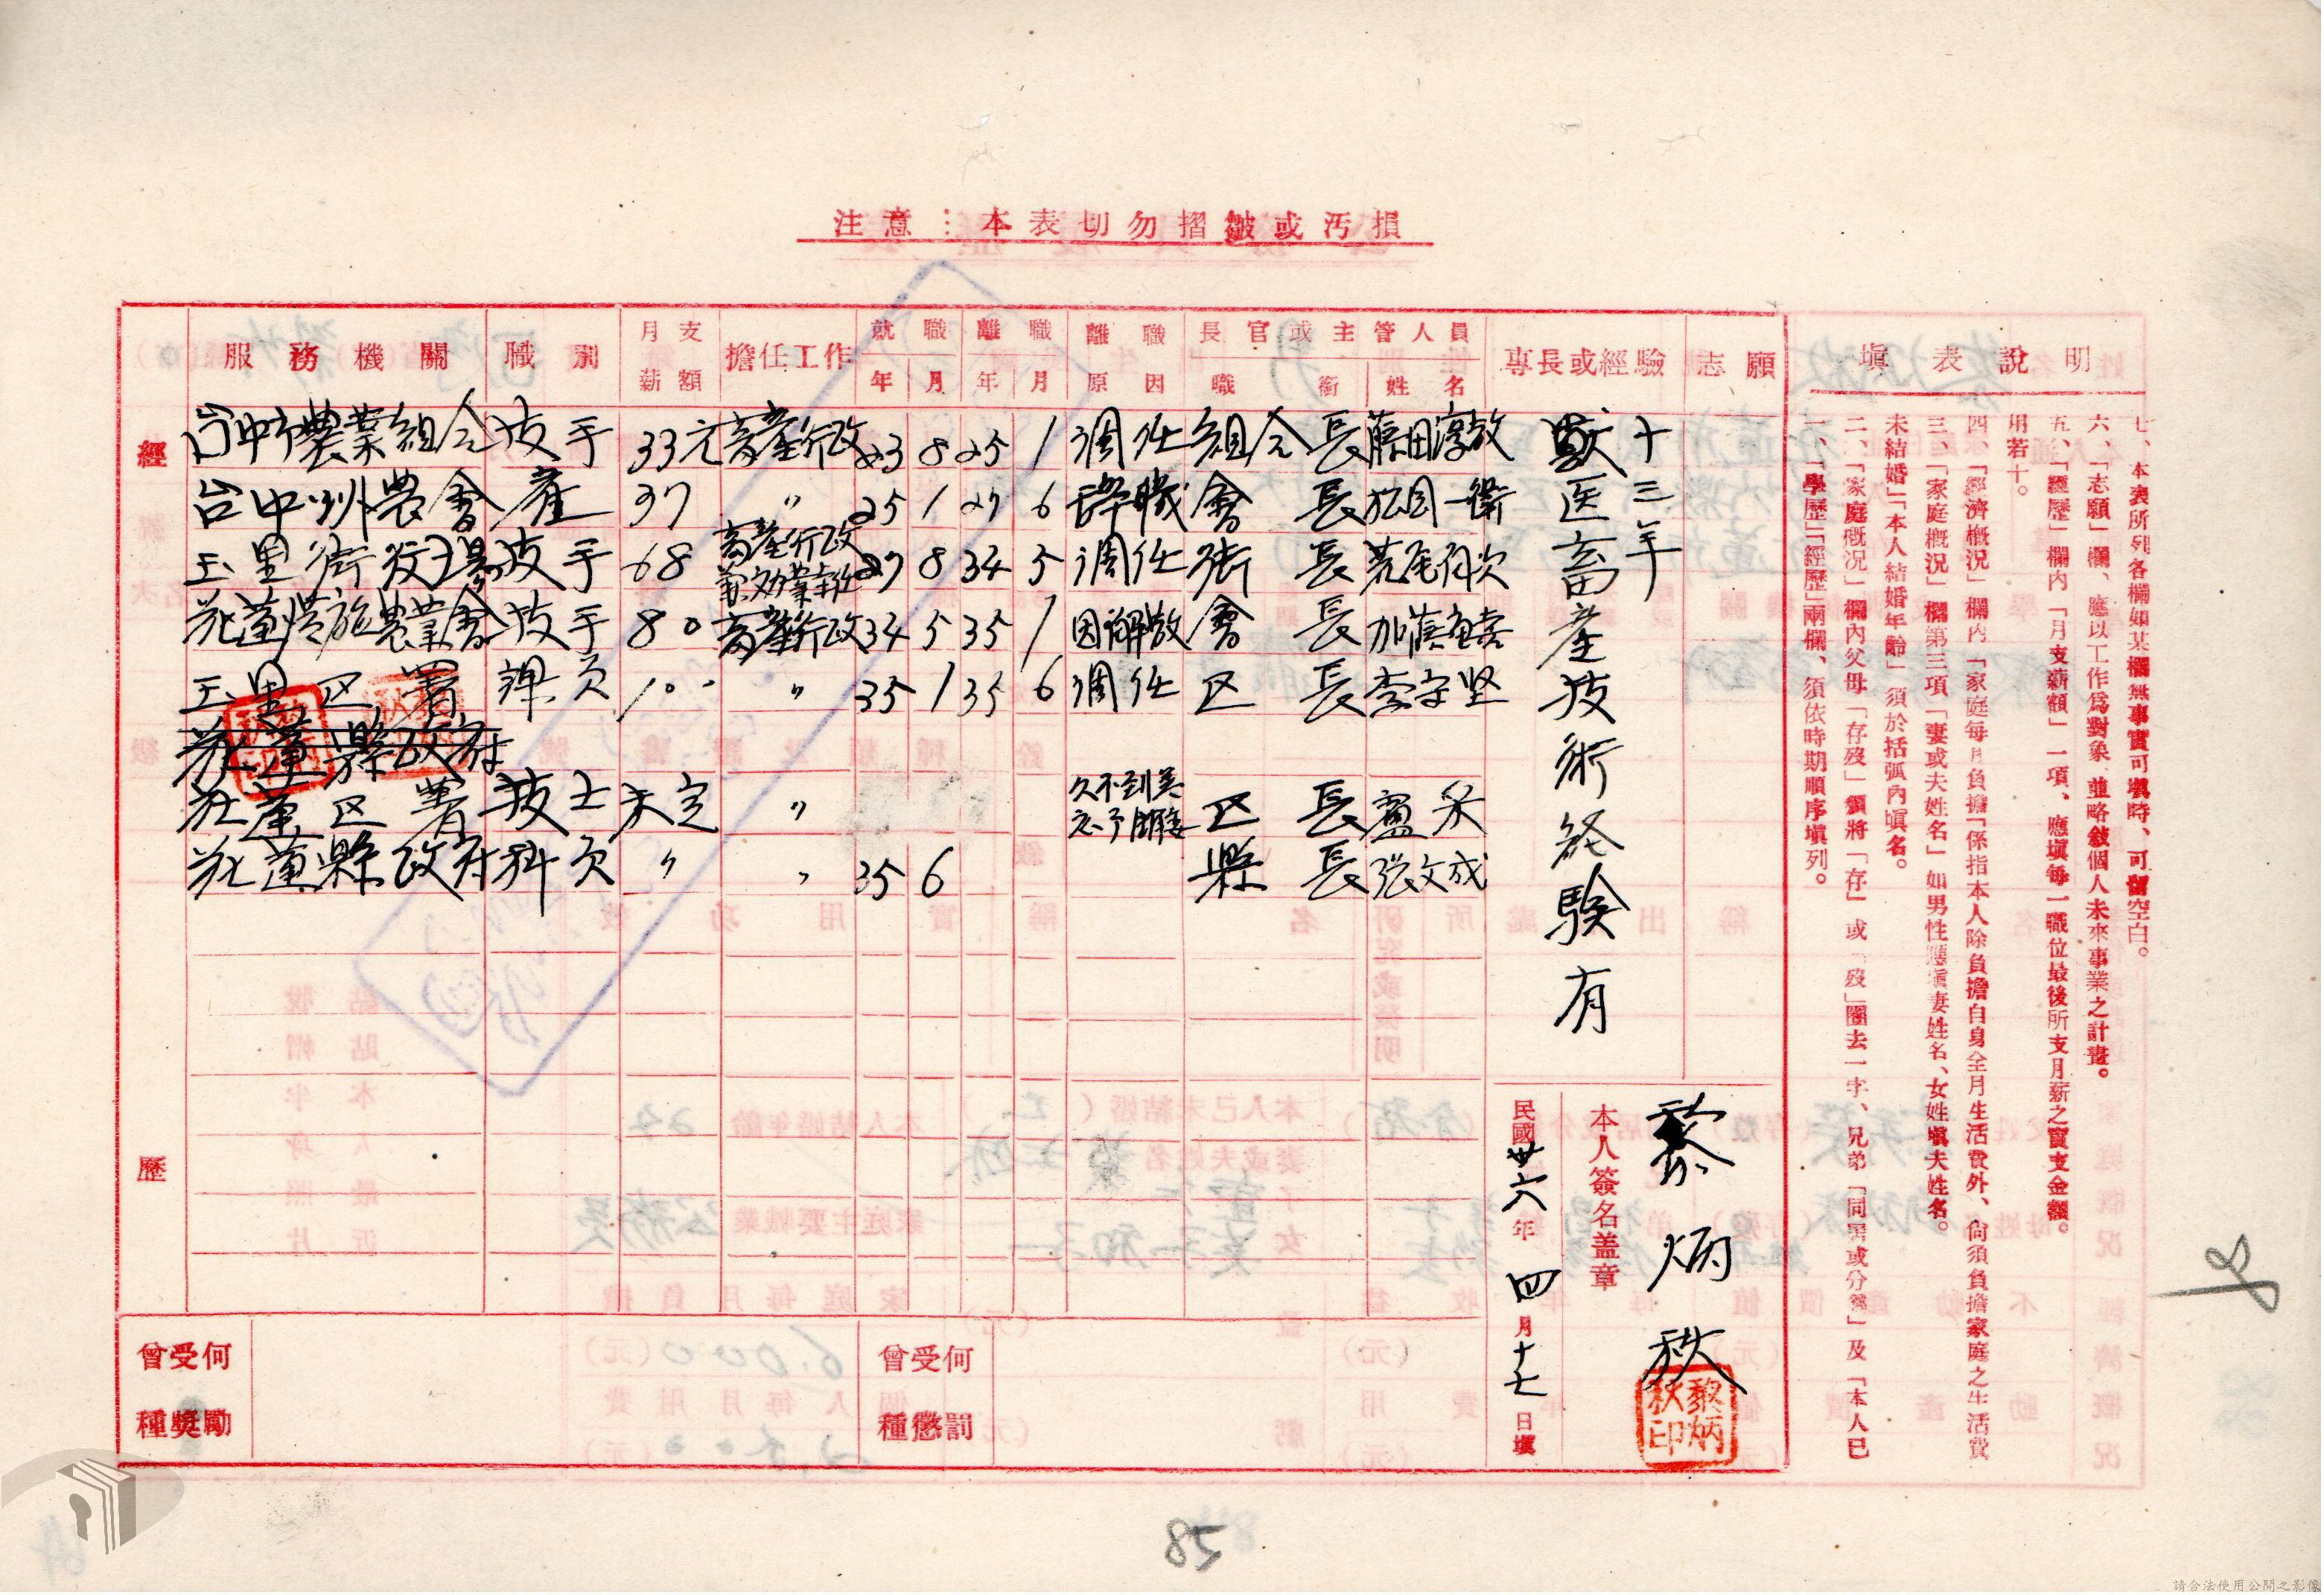 注意：本表切勿摺皺或汚損
經歷
服務機關 職別 月支薪額 擔任工作 就職年月 離職年月 離職原因 長官或主管人員 職銜 姓名 專長或經驗 志願
台中市農業組合 技手 33元 畜產行政 23 8 25 1 調任 組合長
台中州農會 產 37 〃 25 1 27 6 辞職 會長
玉里街役場 技手 68 畜產行政 27 8 34 5 調任 街長
花蓮港施農業會 技手 80 畜產行政 34 5 35 1 因解散 會長
玉里区署 課員 100 〃 35 1 35 6 調任 区長 李守坚
花蓮縣政府
花蓮区署 技士 未定 〃 区長
花蓮縣政府 科員 〃 〃 35 6 縣長 張文成
十三年
獸医畜産技術経験有
本人簽名盖章
黎炳秋
黎炳秋印
民國卅六年四月十七日塡
曾受何種奬勵
曾受何種懲罰
塡表說明
一、「學歷」「經歷」兩欄、須依時期順序塡列。
二、「家庭概況」欄內父母「存歿」須將「存」或「歿」圈去一字、兄弟「同居或分爨」及「本人已
未結婚」「本人結婚年齡」須於括弧內塡名。
三、「家庭概況」欄第三項「妻或夫姓名」如男性應塡妻姓名、女姓塡夫姓名。
四、「經濟概況」欄內「家庭每月負擔」係指本人除負擔自身全月生活費外、尙須負擔家庭之生活費
用若干。
五、「經歷」欄內「月支薪額」一項、應塡每一職位最後所支月薪之實支金額。
六、「志願」欄、應以工作爲對象並略敍個人未來事業之計畫。
七、本表所列各欄如某欄無事實可塡時、可留空白。
58
請合法使用公開之影像